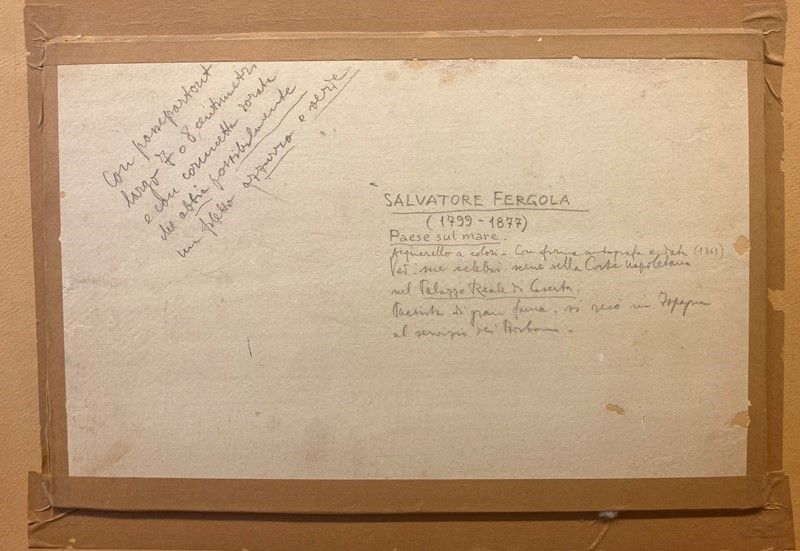 Con passepartout
largo 7 o 8 centimetri
e con cornicetta dorata
che abbia possibilmente
un filetto azzurro e verde
SALVATORE FERGOLA
(1799-1877)
Paese sul mare.
Acquerello a colori - Con firma autografa e data (1863)
Ved. sue celebri scene della Corte napoletana
nel Palazzo Reale di Caserta.
Paesista di gran fama, si recò in Ispagna
al servizio dei Borboni -